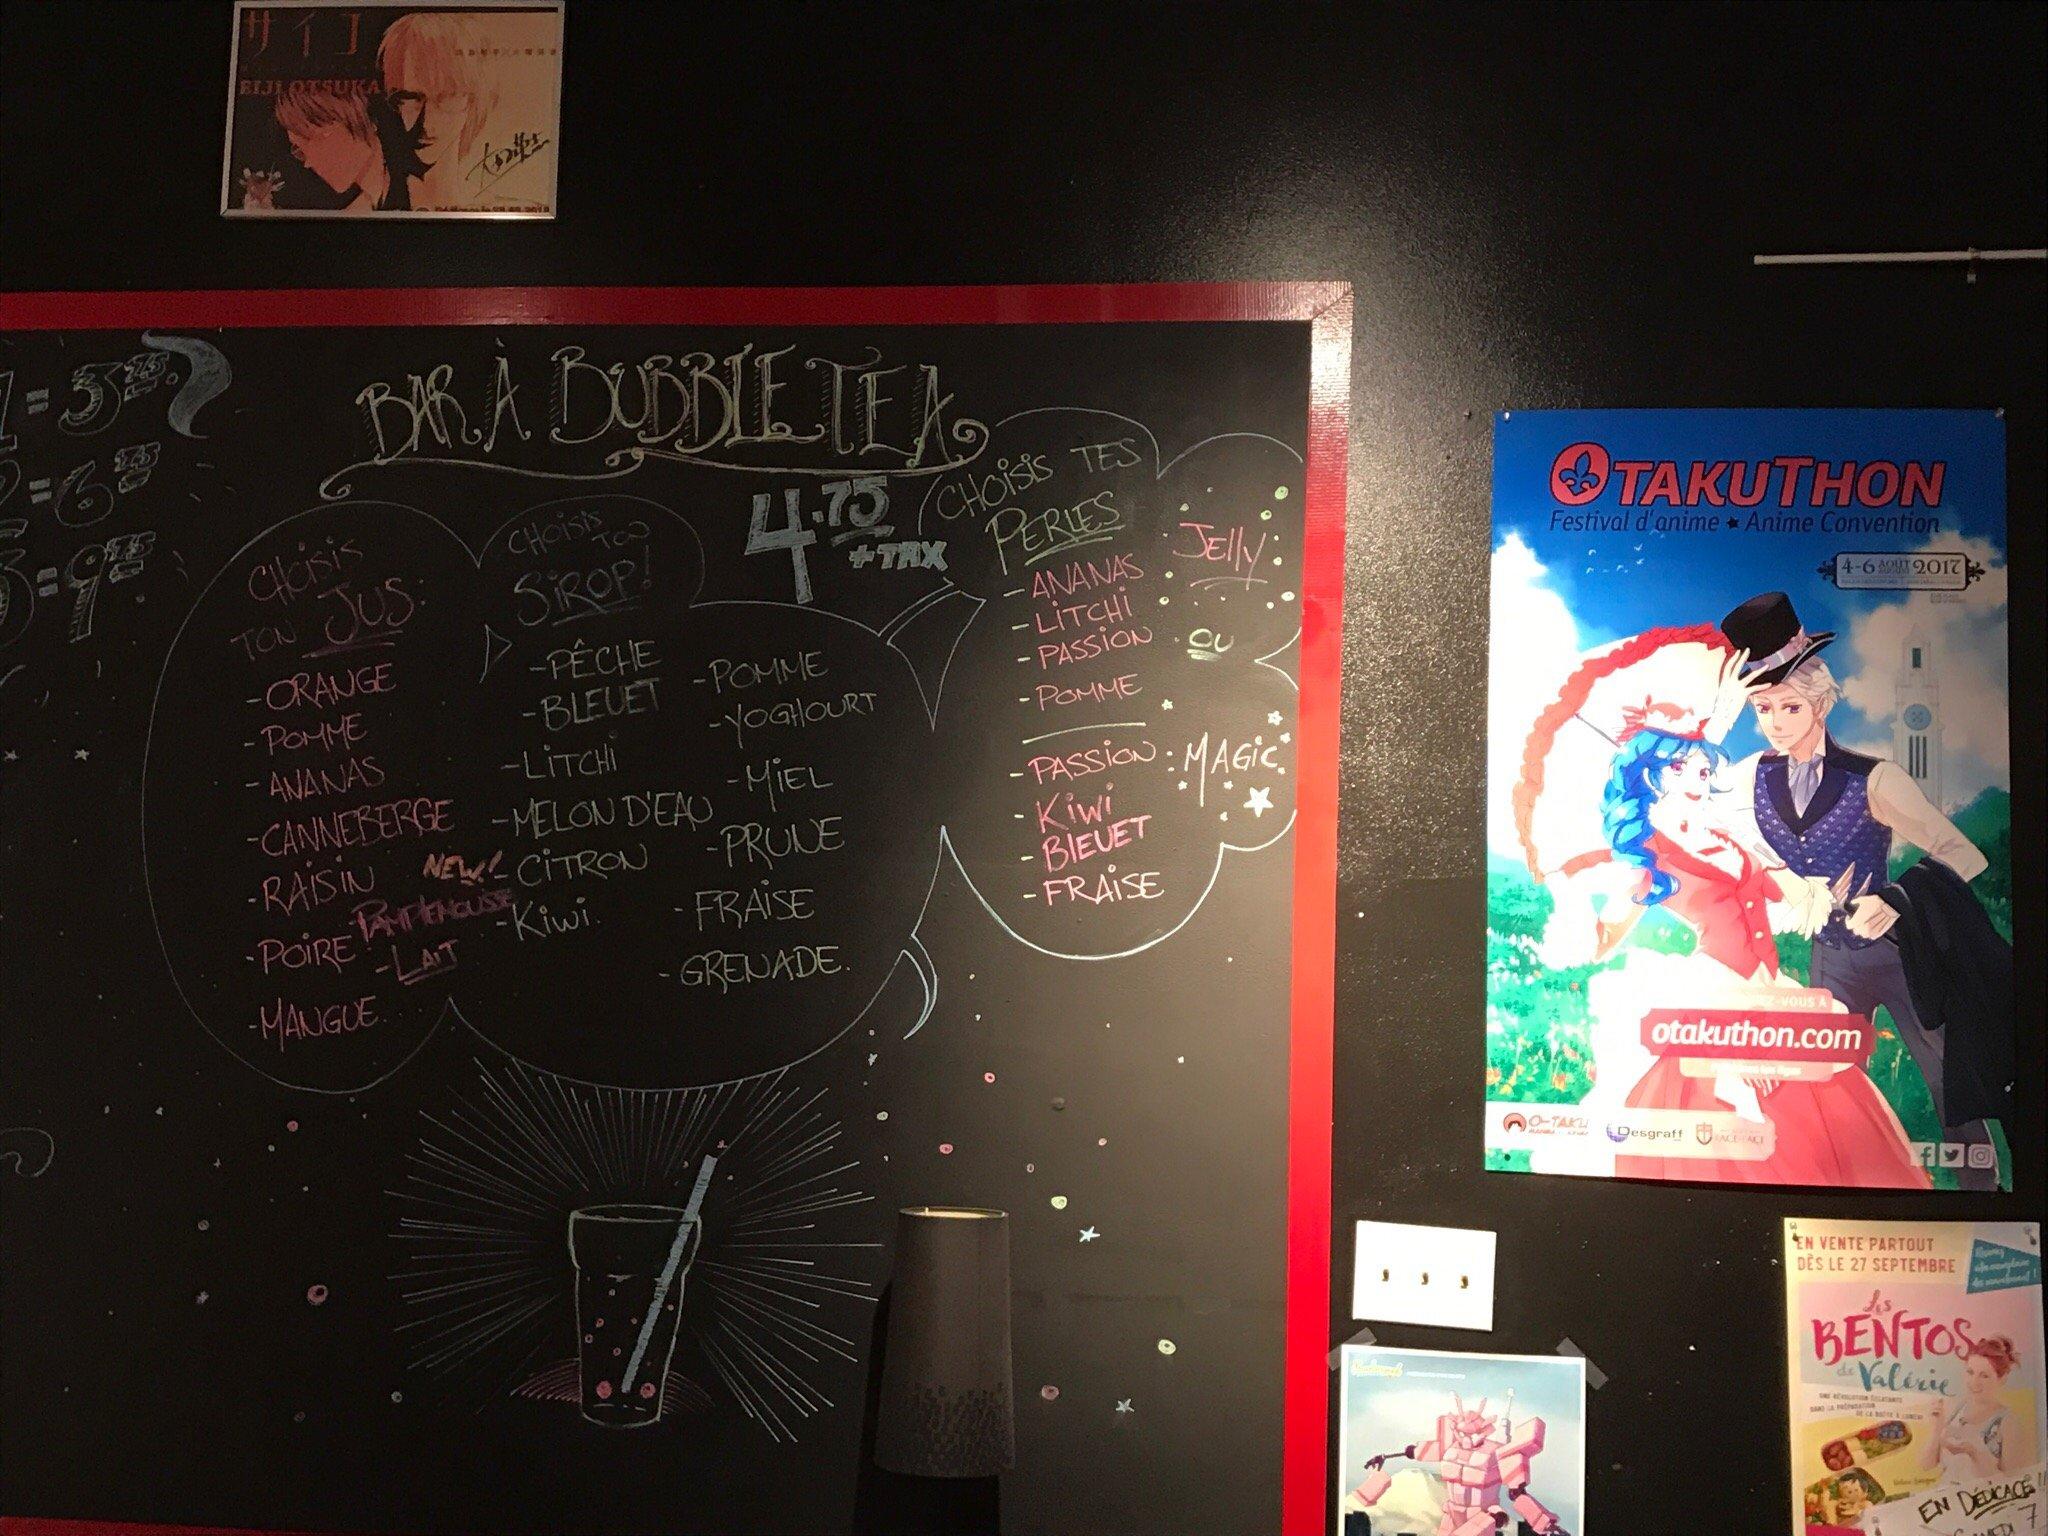 サイコ
EIJI OTSUKA
1 = 3.25
2 = 6.25
3 = 9.25
BAR À BUBBLE TEA
4.75
+ TAX
CHOISIS
TON JUS:
- ORANGE
- POMME
- ANANAS
- CANNEBERGE
- RAISIN
NEW!
- PAMPLEMOUSSE
- POIRE
- LAIT
- MANGUE
CHOISIS
TON
SIROP!
- PÊCHE
- BLEUET
- LITCHI
- MELON D'EAU
- CITRON
- KIWI.
- POMME
- YOGHOURT
- MIEL
- PRUNE
- FRAISE
- GRENADE.
CHOISIS TES
PERLES
- ANANAS
- LITCHI
- PASSION
- POMME
JELLY
OU
- PASSION
- KIWI
- BLEUET
- FRAISE
: MAGIC
OTAKUTHON
Festival d'anime ★ Anime Convention
4-6 AOÛT 2017
otakuthon.com
O-TAKU
Desgraff
EN VENTE PARTOUT
DÈS LE 27 SEPTEMBRE
Les
BENTOS
de Valérie
UNE RÉVOLUTION ÉCLATANTE
DANS LA PRÉPARATION
DE LA BOÎTE À LUNCH!
EN DÉDICACE!!
7